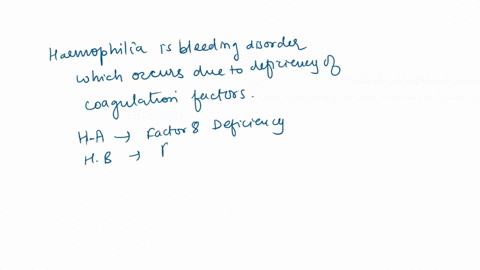 Haemophilia is bleeding disorder
which occurs due to deficiency of
coagulation factors.
H-A → Factor 8 Deficiency
H.B →